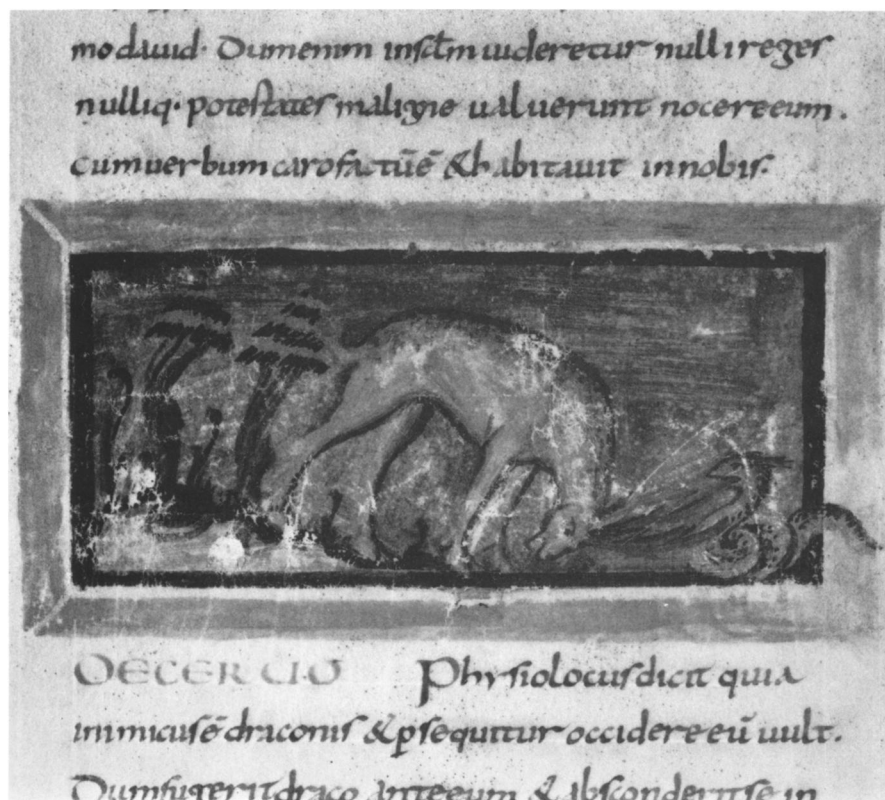 mo dauid· Dum enim insctm uideretur nulli reges
nulliq· potestates maligne ualuerunt nocere eum.
Cum uerbum caro factūē & habitauit in nobis·
DE CERVO Physiolocus dicit quia
inimicus ē draconis & psequitur occidere eū uult.
Dum fugerit draco ante eum & absconderit se in